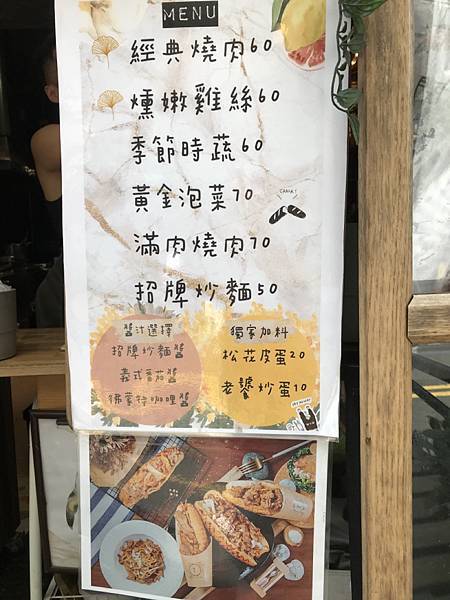 MENU
經典燒肉60
燻嫩雞絲60
季節時蔬60
黃金泡菜70
滿肉燒肉70
招牌炒麵50
醬汁選擇
招牌炒麵醬
義式番茄醬
佛蒙特咖哩醬
獨家加料
松花皮蛋20
老饕炒蛋10